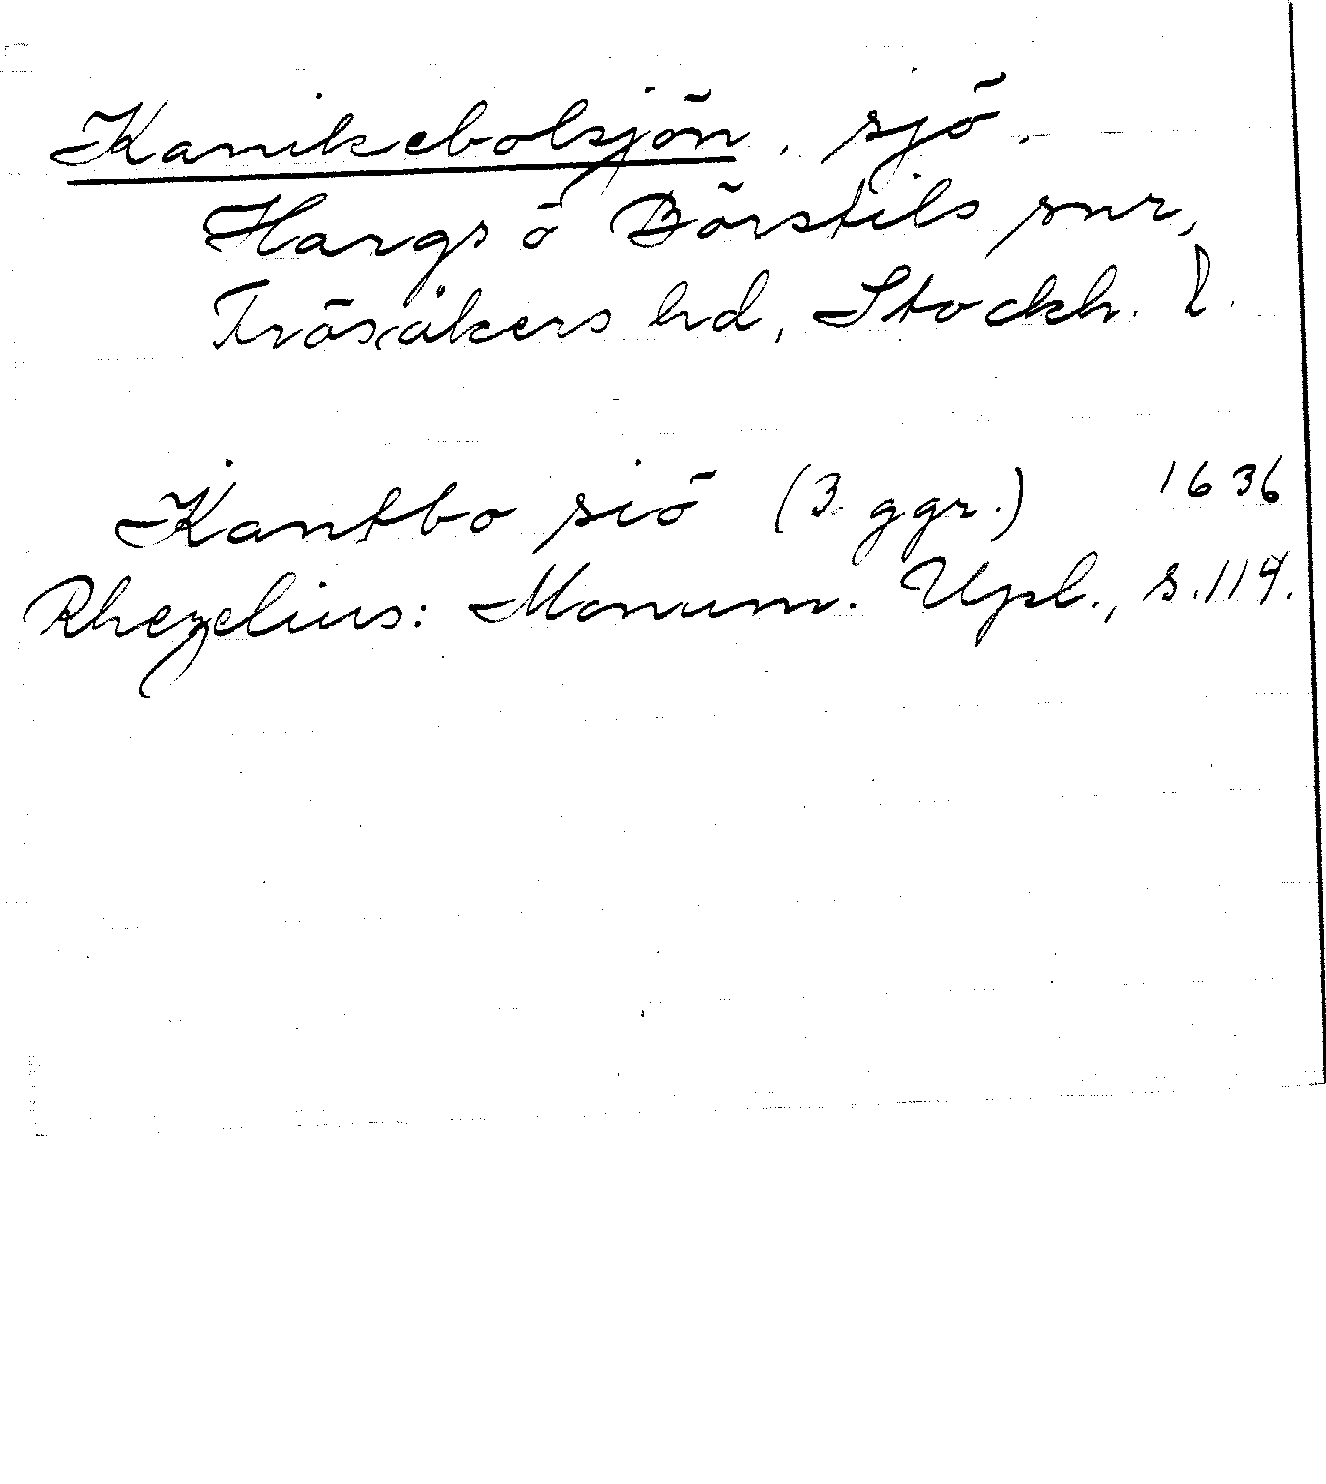 Kanikebolsjön, sjö.
Hargs o Börstils snr,
Frösåkers hd, Stockh. l.
Kantbo siö (3 ggr.) 1636
Rhezelius: Monum. Upl., s. 114.